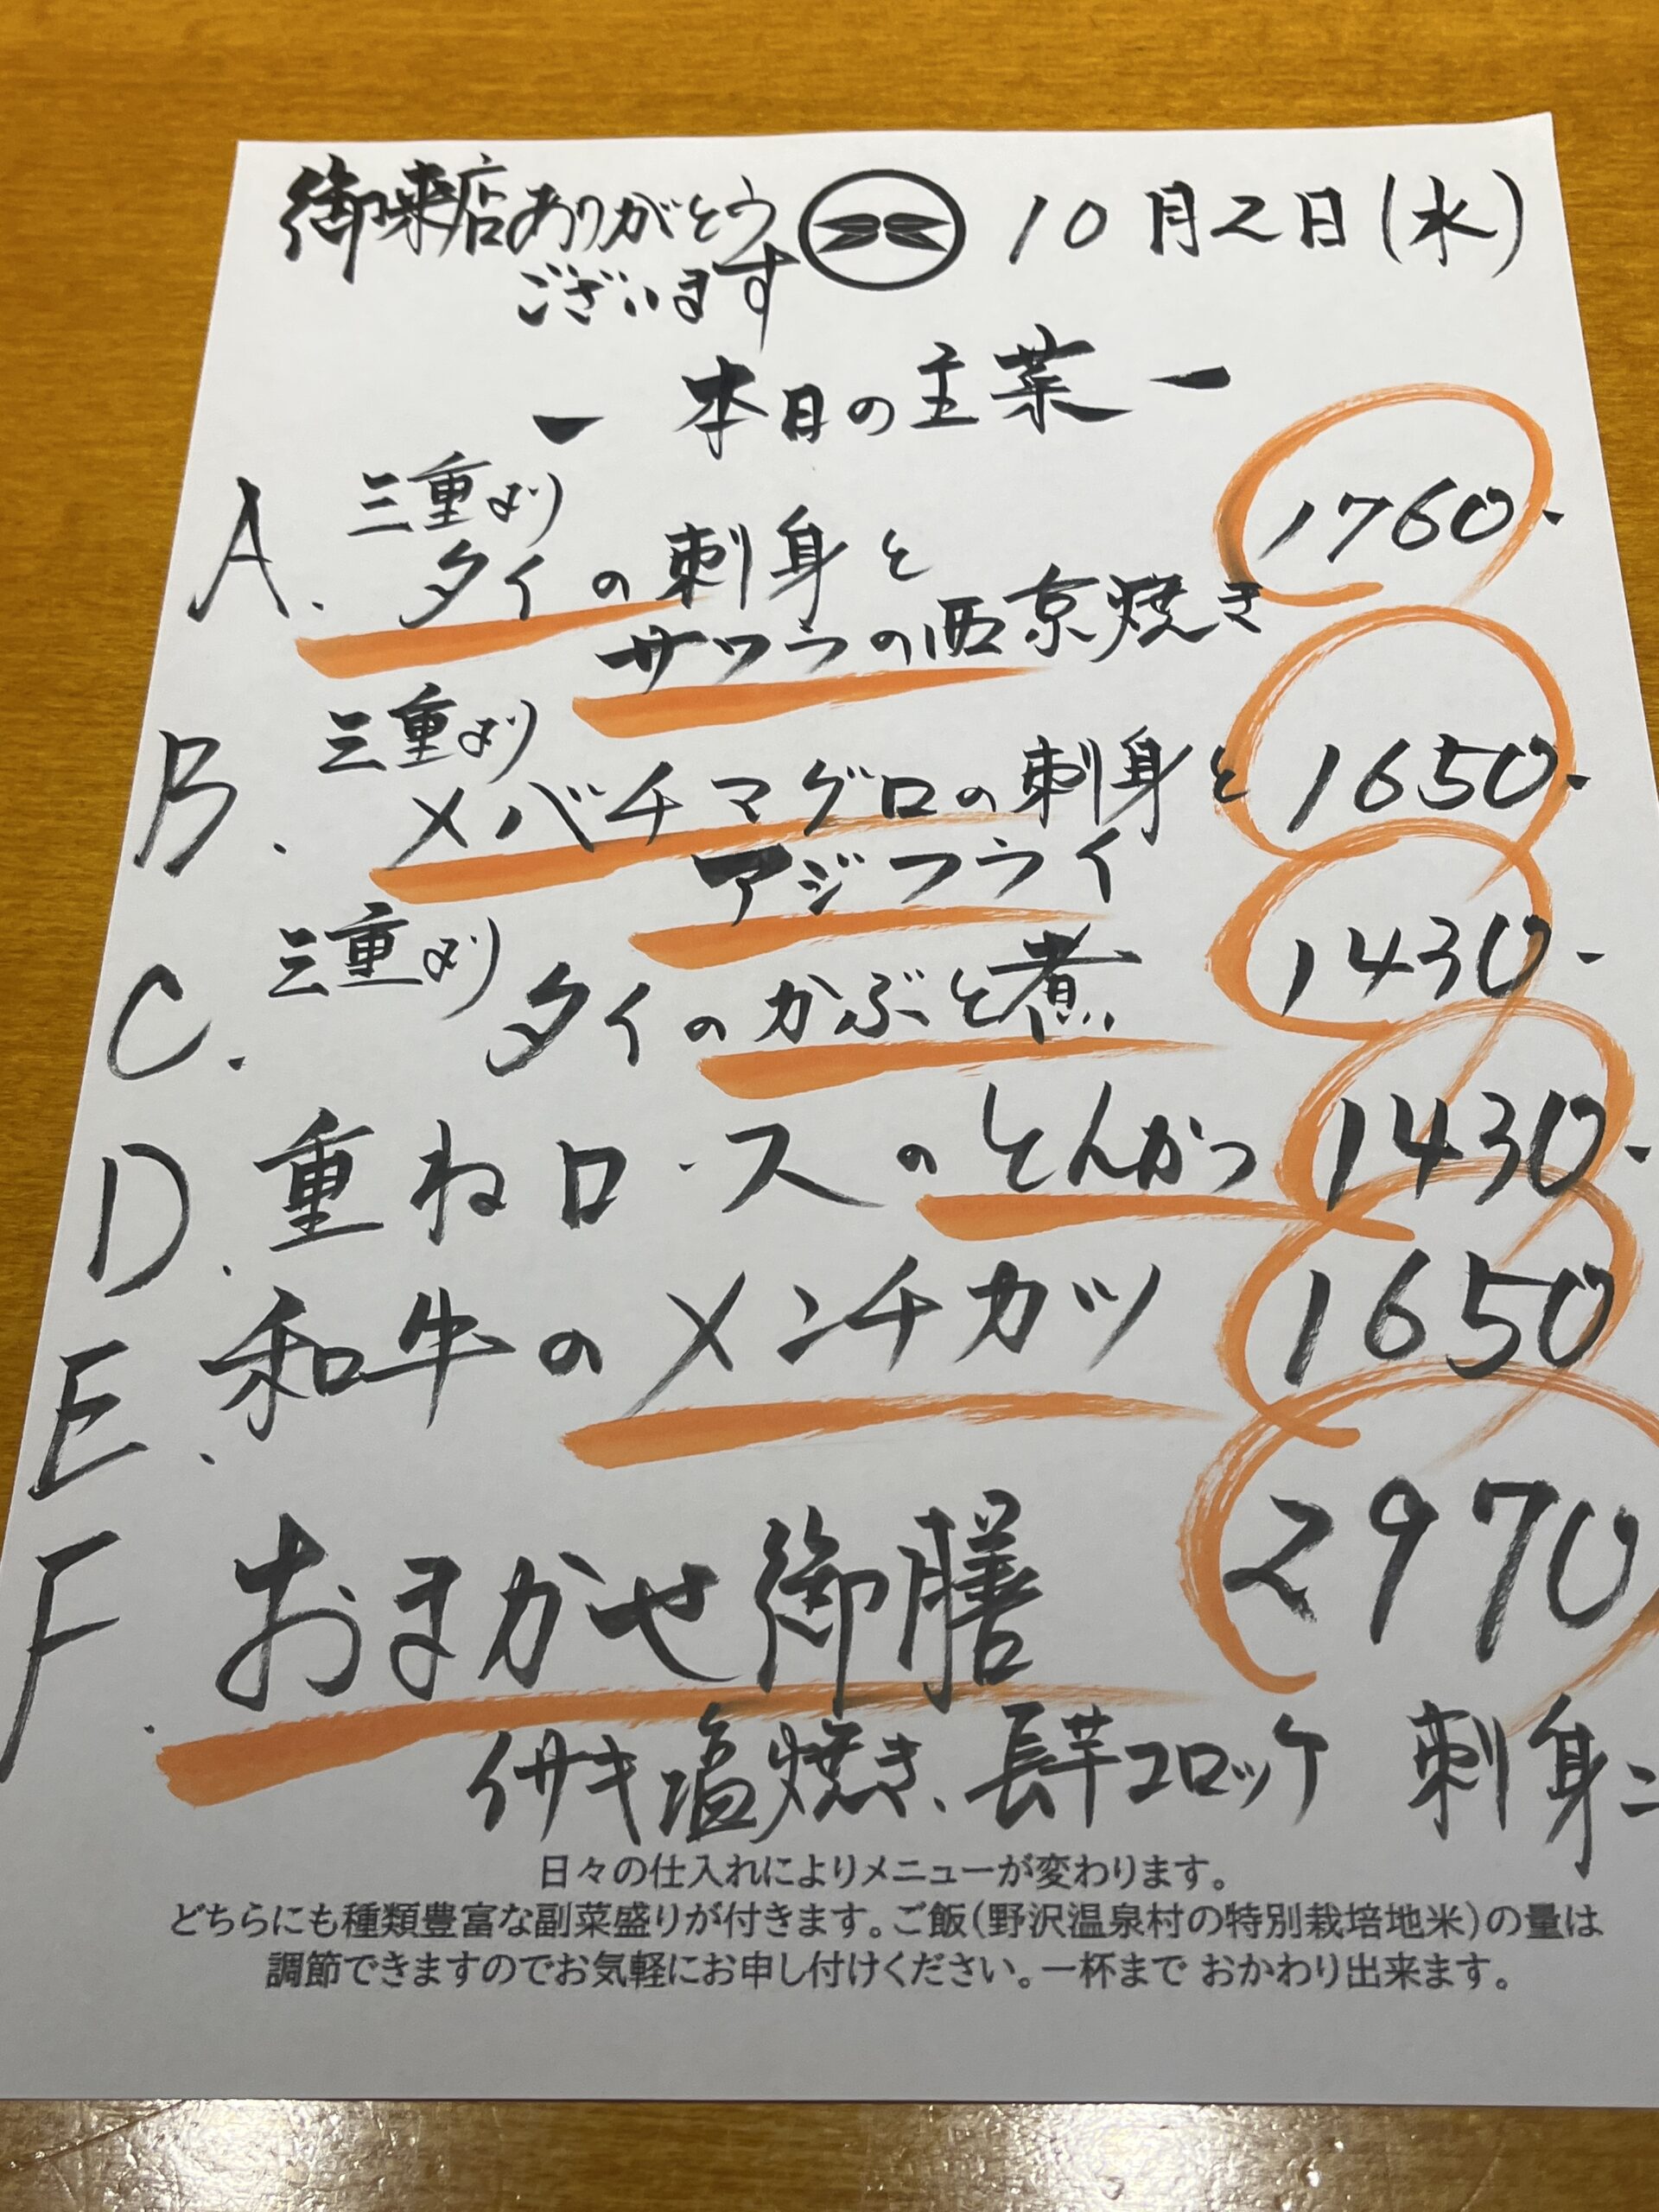 御来店ありがとう
ございます
10月2日(水)
ー 本日の主菜 ー
A. 三重より
タイの刺身と
サワラの西京焼き
1760-
B. 三重より
メバチマグロの刺身と
アジフライ
1650-
C. 三重より
タイのかぶと煮
1430-
D. 重ねロースのとんかつ 1430-
E. 和牛のメンチカツ 1650
F. おまかせ御膳 2970
イサキ塩焼き、長芋コロッケ 刺身ニ
日々の仕入れによりメニューが変わります。
どちらにも種類豊富な副菜盛りが付きます。ご飯(野沢温泉村の特別栽培地米)の量は
調節できますのでお気軽にお申し付けください。一杯まで おかわり出来ます。